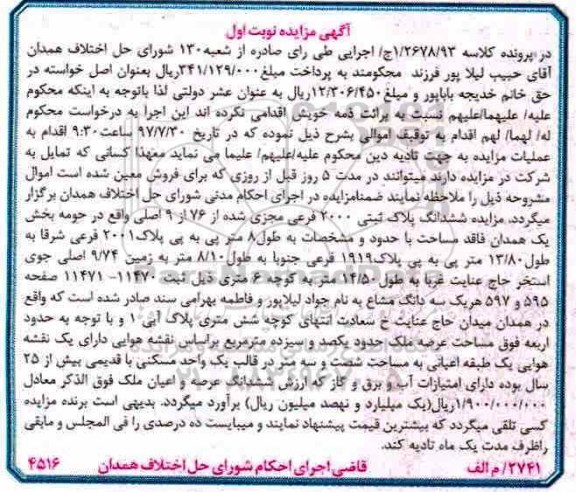 آگهی مزایده نوبت اول
در پرونده کلاسه ۱/۲۶۷۸/۹۳ج/ اجرایی طی رای صادره از شعبه۱۳۰ شورای حل اختلاف همدان
آقای حبیب لیلا پور فرزند محکومند به پرداخت مبلغ۳۴۱/۱۲۹/۰۰۰ریال بعنوان اصل خواسته در
حق خانم خدیجه باباپور و مبلغ۱۲/۳۰۶/۴۵۰ریال به عنوان عشر دولتی لذا باتوجه به اینکه محکوم
علیه/ علیهما/علیهم نسبت به برائت ذمه خویش اقدامی نکرده اند این اجرا به درخواست محکوم
له/ لهما/ لهم اقدام به توقیف اموالی بشرح ذیل نموده که در تاریخ ۹۷/۷/۳۰ ساعت۹:۳۰ اقدام به
عملیات مزایده به جهت تادیه دین محکوم علیه/علیهم/ علیما می نماید معهذا کسانی که تمایل به
شرکت در مزایده دارند میتوانند در مدت ۵ روز قبل از روزی که برای فروش معین شده است اموال
مشروحه ذیل را ملاحظه نمایند ضمنامزایده در اجرای احکام مدنی شورای حل اختلاف همدان برگزار
میگردد. مزایده ششدانگ پلاک ثبتی ۲۰۰۰ فرعی مجزی شده از ۷۶ از ۹ اصلی واقع در حومه بخش
یک همدان فاقد مساحت با حدود و مشخصات به طول۸ متر پی به پی پلاک۲۰۰۱ فرعی شرقا به
طول۱۳/۸۰ متر پی به پی پلاک۱۹۱۹ فرعی جنوبا به طول۸/۱۰ متر به زمین ۹/۷۴ اصلی جوی
استخر حاج عنایت غربا به طول۱۴/۵۰ متر به کوچه ۶ متری ذیل ثبت ۱۱۴۷۰- ۱۱۴۷۱ صفحه
۵۹۵ و ۵۹۷ هریک سه دانگ مشاع به نام جواد لیلاپور و فاطمه بهرامی سند صادر شده است که واقع
در همدان میدان حاج عنایت خ سعادت انتهای کوچه شش متری پلاک آبی۱۰ و با توجه به حدود
اربعه فوق مساحت عرصه ملک حدود یکصد و سیزده مترمربع براساس نقشه هوایی دارای یک نقشه
هوایی یک طبقه اعیانی به مساحت شصت و سه متر در قالب یک واحد مسکنی با قدیمی بیش از ۲۵
سال بوده دارای امتیازات آب و برق و گاز که ارزش ششدانگ عرصه و اعیان ملک فوق الذکر معادل
۱/۹۰۰/۰۰۰/۰۰۰ریال(یک میلیارد و نهصد میلیون ریال) برآورد میگردد. بدیهی است برنده مزایده
کسی تلقی میگردد که بیشترین قیمت پیشنهاد نمایند و میبایست ده درصدی را فی المجلس و مابقی
راظرف مدت یک ماه تادیه کند.
۲۷۴۱/ م الف قاضی اجرای احکام شورای حل اختلاف همدان ۴۵۱۶